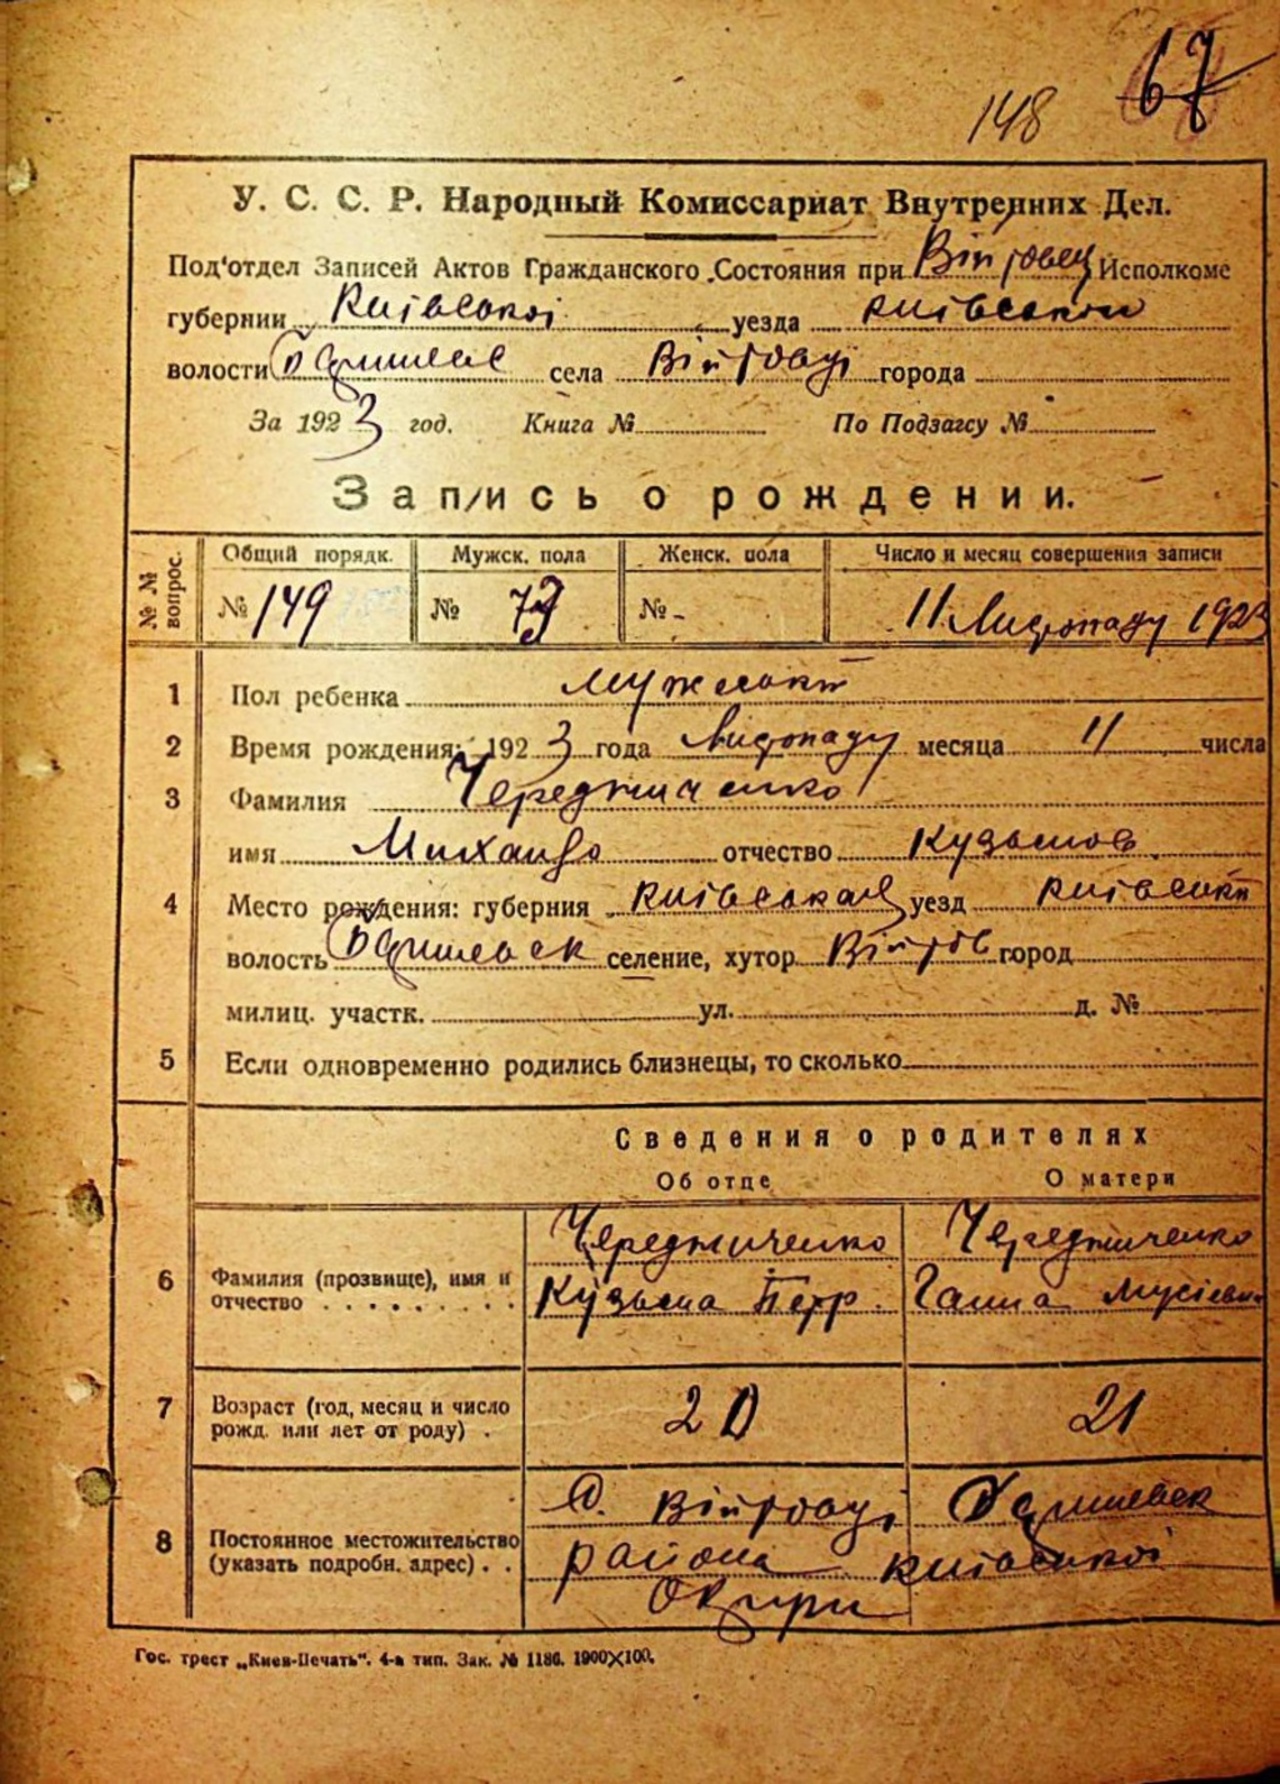 67
148
У. С. С. Р. Народный Комиссариат Внутренних Дел.
Под'отдел Записей Актов Гражданского Состояния при Війтовец Исполкоме
губернии Київської уезда Київської
волости села Війтовці города
За 1923 год. Книга № По Подзагсу №
Запись о рождении.
№ № вопрос. Общий порядк. Мужск. пола Женск. пола Число и месяц совершения записи
№ 149 № 73 № - 11 Листопаду 1923
1 Пол ребенка мужеский
2 Время рождения: 1923 года Листопаду месяца 11 числа
3 Фамилия Чередниченко
имя Михайло отчество Кузьмов
4 Место рождения: губерния Київськая уезд Київський
волость селение, хутор Війтов город
милиц. участк. ул. д. №
5 Если одновременно родились близнецы, то сколько
Сведения о родителях
Об отце О матери
Чередниченко Чередниченко
6 Фамилия (прозвище), имя и отчество Кузьма Петр. Ганна Мусіевн
7 Возраст (год, месяц и число рожд. или лет от роду) . 20 21
с. Війтовці
8 Постоянное местожительство (указать подробн. адрес) . . района Київської
Округи
Гос. трест „Киев-Печать". 4-я тип. Зак. № 1186. 1900×100.